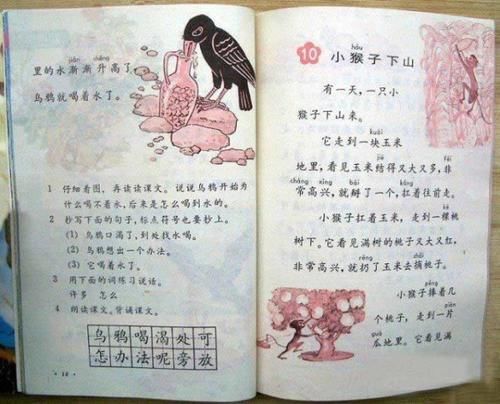 jiàn shēng
里的水渐渐升高了,
乌鸦就喝着水了。
1 仔细看图，再读读课文。说说乌鸦开始为
什么喝不着水,后来是怎么喝到水的。
2 抄写下面的句子,标点符号也要抄上。
(1) 乌鸦口渴了,到处找水喝。
(2) 乌鸦想出一个办法。
(3) 它喝着水了。
3 用下面的词练习说话。
许多 怎么
4 朗读课文。背诵课文。
乌鸦喝渴处可
怎办法呢旁放
hóu
10 小猴子下山
有一天,一只小
猴子下山来。
kuài
它走到一块玉米
jiē fēi
地里,看见玉米结得又大又多,非
cháng xìng bāi káng
常高兴,就掰了一个,扛着往前走。
小猴子扛着玉米，走到一棵桃
树下。它看见满树的桃子又大又红,
rēng zhāi
非常高兴,就扔了玉米去摘桃子。
pěng
小猴子捧着几
piàn
个桃子，走到一片
guā
瓜地里。它看见满